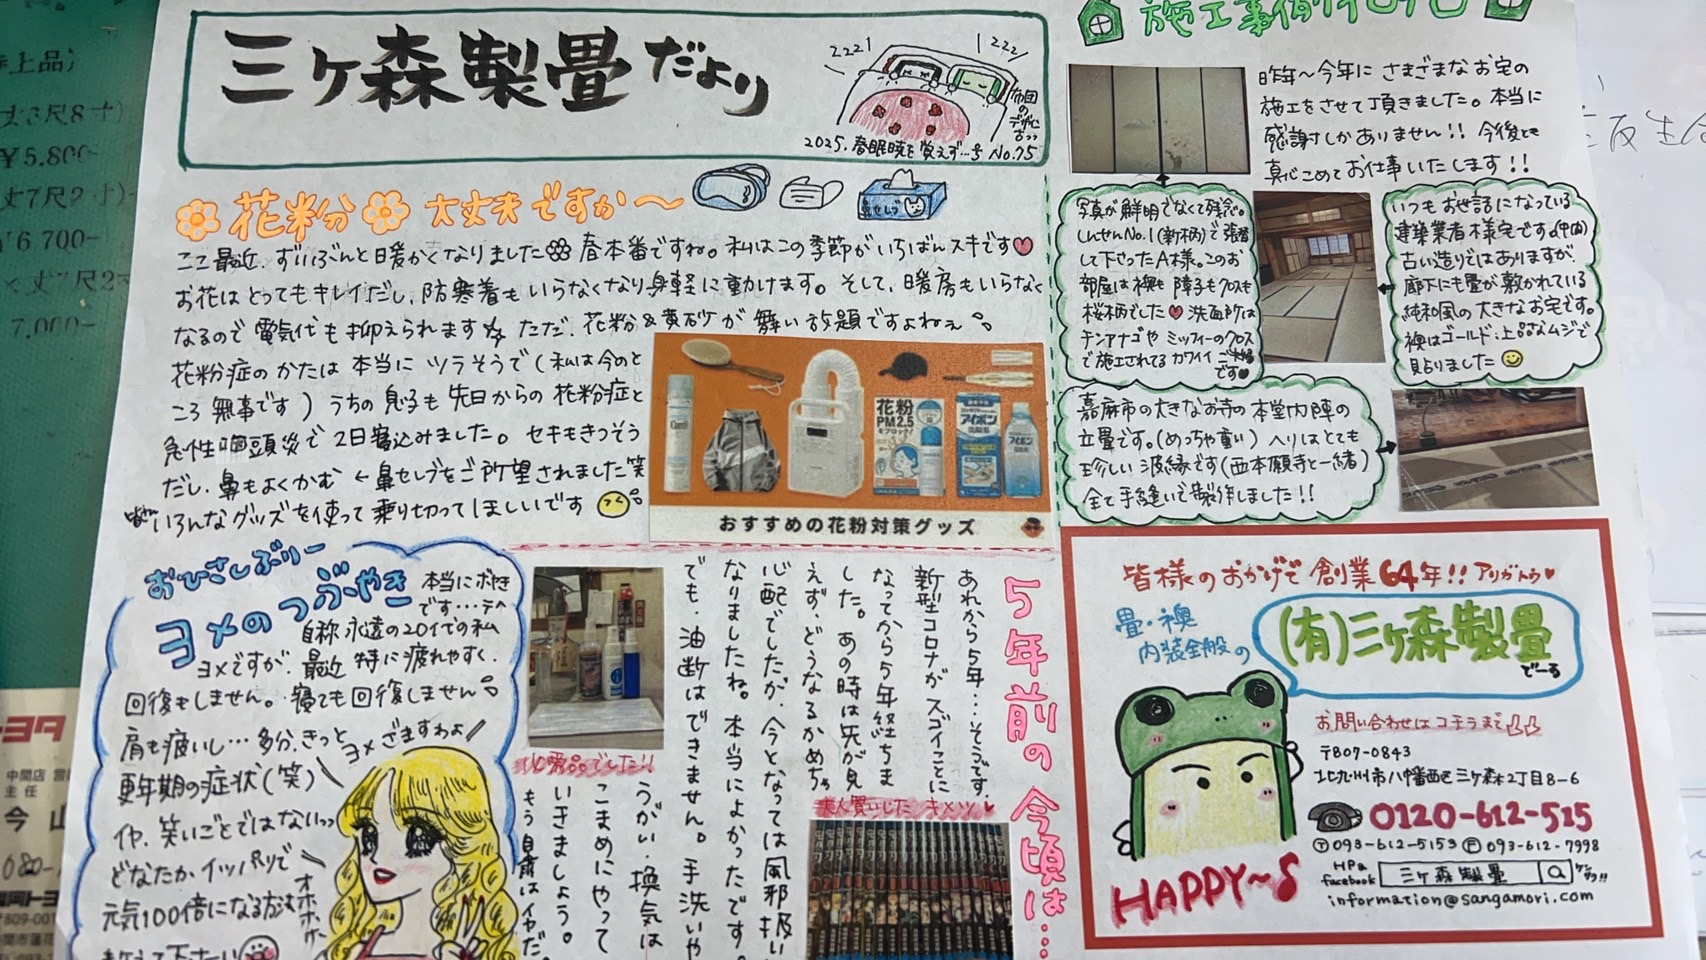 三ケ森製畳だより
222!
222
布団のデザイン古っ
2025.春眠暁を覚えず…号 No.75
花粉 大丈夫ですか〜
鼻セレブ
ここ最近、ずいぶんと日暖かくなりました 春本番ですね。私はこの季節がいちばんスキです♥
お花はとってもキレイだし、防寒着もいらなくなり身軽に動けます。そして、暖房もいらなく
なるので電気代も抑えられます☆ ただ、花粉&黄砂が舞い放題ですよねぇ。
花粉症のかたは本当にツラそうで(私は今のと
ころ無事です)うちの息子も先日からの花粉症と
急性咽頭炎で2日寝込みました。セキもきつそう
だし、鼻もよくかむ ←鼻セレブをご所望されました笑
皆さんいろんなグッズを使って乗り切ってほしいです
花粉
PM2.5
をブロック!
アイボン
アイボン
おすすめの花粉対策グッズ
施工事例
昨年〜今年にさまざまなお宅の
施工をさせて頂きました。本当に
感謝しかありません!! 今後とも
真心こめてお仕事いたします!!
写真が鮮明でなくて残念。
しんせんNo.1(新柄)で張替
して下さったA様。このお
部屋は襖も障子もクロスも
桜柄でした♥洗面所は
チンアナゴやミッフィーのクロス
で施工されてるカワイイご夫婦
です♥
いつもお世話になっている
建築業者様宅です。(中間)
古い造りではありますが、
廊下にも畳が敷かれている
純和風の大きなお宅です。
襖はゴールド:上品なムジで
貼りました
嘉麻市の大きなお寺の本堂内陣の
立畳です。(めっちゃ重い) ヘリはとても
珍しい波縁です(西本願寺と一緒)
全て手縫いで製作しました!!
おひさしぶりー
ヨメのつぶやき
本当にボヤき
です…テヘ
自称永遠の20代の私
ヨメですが、最近特に疲れやすく、
回復もしません。寝ても回復しません。
肩も痛いし…多分、きっと
更年期の症状(笑)
イヤ、笑いごとではないっっ
どなたか、イッパツで
元気100倍になる方法
教えて下さい
ヨメざますわよ
オホホホホ
5年前の今頃は…
あれから5年…そうです、
新型コロナがスゴイことに
なってから5年経ちま
した。あの時は先が見
えず、どうなるかめちゃ
心配でしたが、今となっては風邪扱い
なりましたね。本当によかったです。
でも、油断はできません。手洗いや
うがい・換気は
こまめにやって
いきましょう。
もう自粛はイヤだ。
愛品でした!!
大人買いしたキメツ♥
皆様のおかげで創業64年!! アリガトウ♥
畳・襖
内装全般の
(有)三ケ森製畳
でーる
お問い合わせはコチラまで
〒807-0843
北九州市八幡西区三ケ森2丁目8-6
0120-612-515
T 093-612-5153 F 093-612-7998
HP&
facebook
三ケ森製畳
ケンサク!!
information@sangamori.com
HAPPY〜
上品
丈5尺8寸
¥5,800-
丈7尺2寸
¥6,700-
7,000-
ヨタ
中間店 営
主任
今山
080-